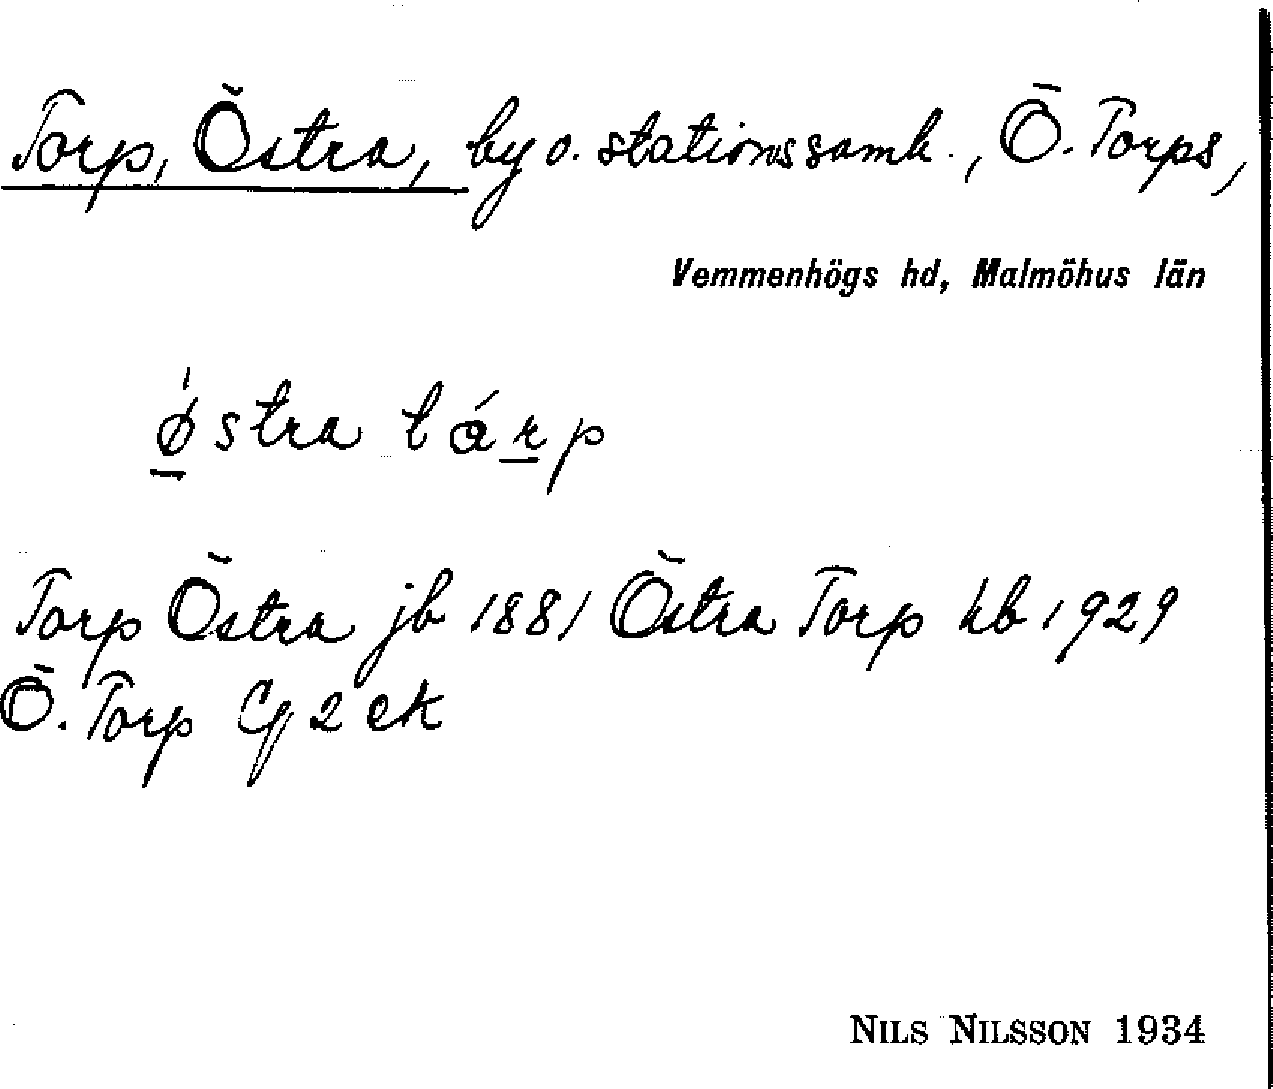 Torp, Östra, by o. stationssamh., Ö. Torps,
Vemmenhögs hd, Malmöhus län
ǿstra tárp
Torp Östra jb 1881 Östra Torp hb 1929
Ö. Torp Cg 2 ek
NILS NILSSON 1934